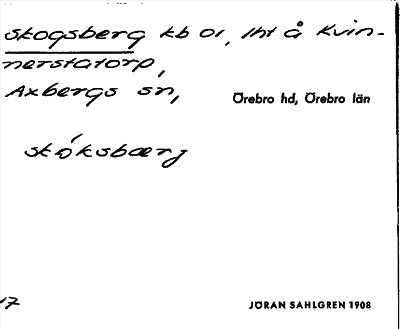 Skogsberg kb 01, lht å Kvin-
nerstatorp,
Axbergs sn,
Örebro hd, Örebro län
skóksbærj
17
JÖRAN SAHLGREN 1908